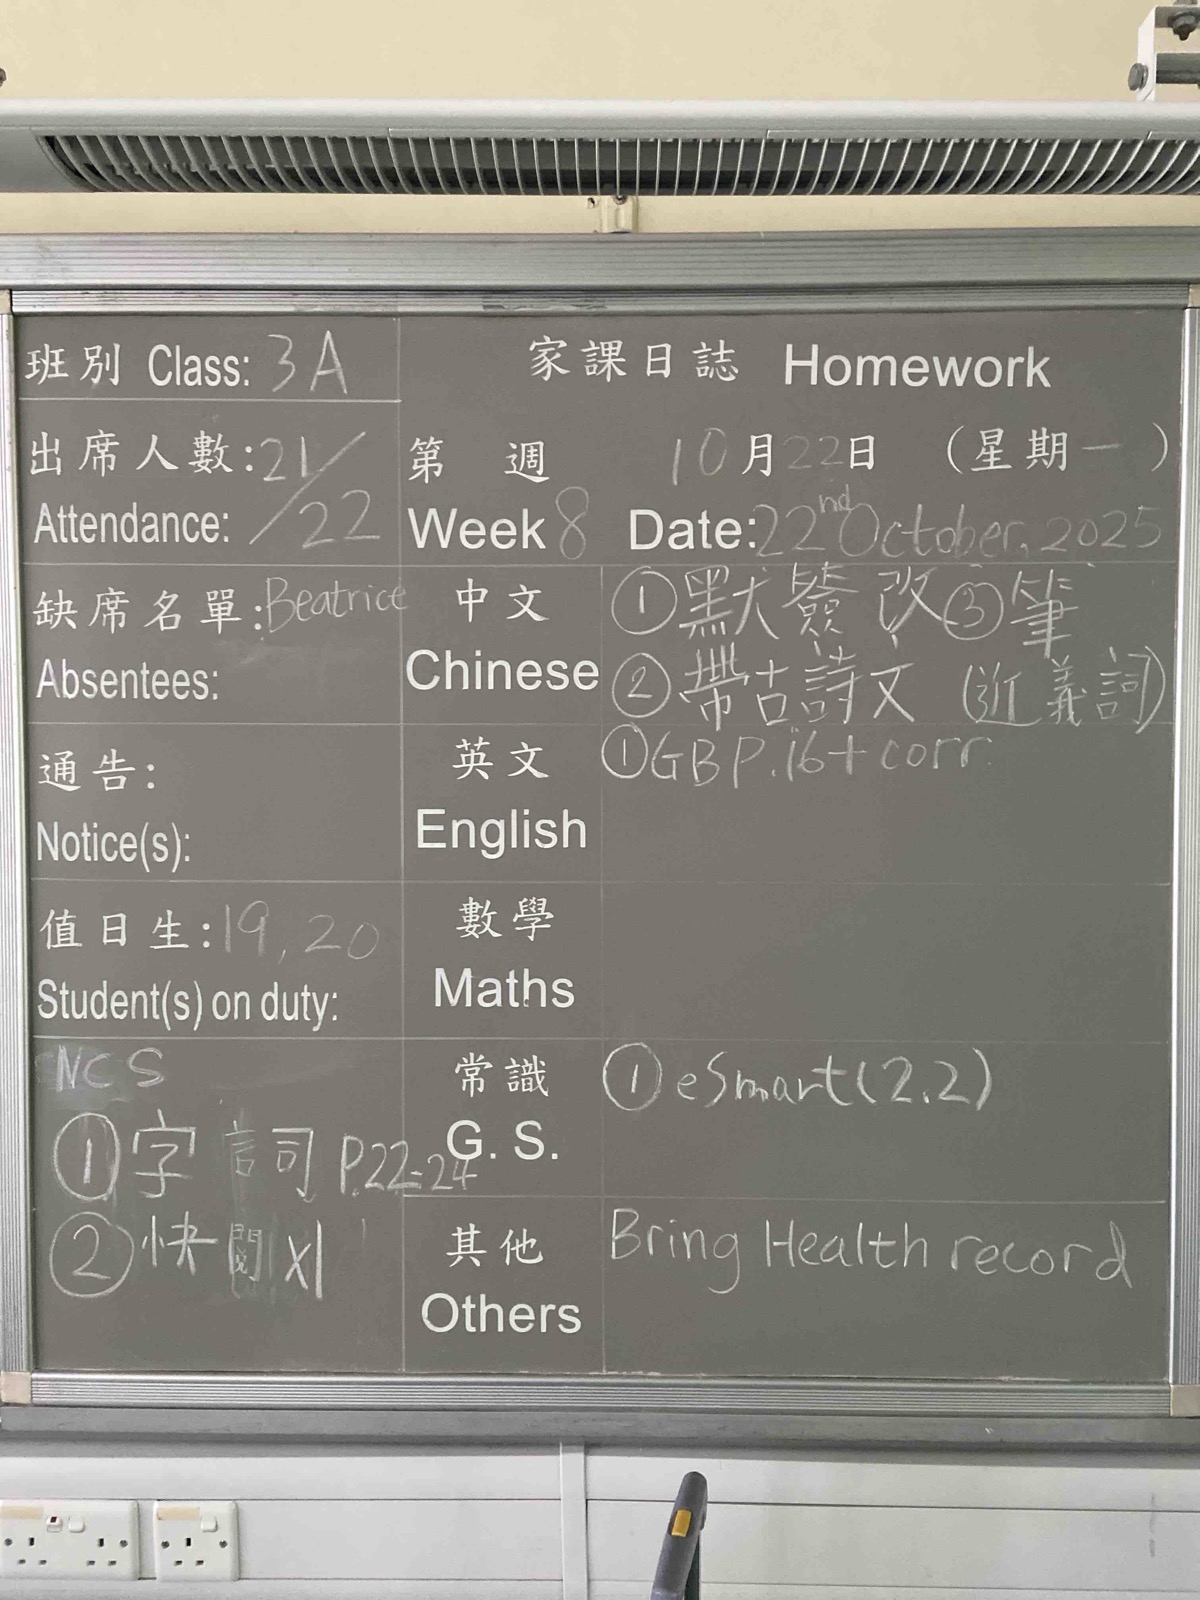 班別 Class: 3A
家課日誌 Homework
出席人數: 21/22
Attendance:
第 週 10月22日 (星期一)
Week 8 Date: 22nd October, 2025
缺席名單: Beatrice
Absentees:
中文
Chinese
①默簽改③筆
②帶古詩文 (近義詞)
通告:
Notice(s):
英文
English
①GB P.16+corr.
值日生: 19, 20
Student(s) on duty:
數學
Maths
NCS
①字 詞 P.22-24
②快閱x1
常識
G. S.
①eSmart(2.2)
其他
Others
Bring Health record